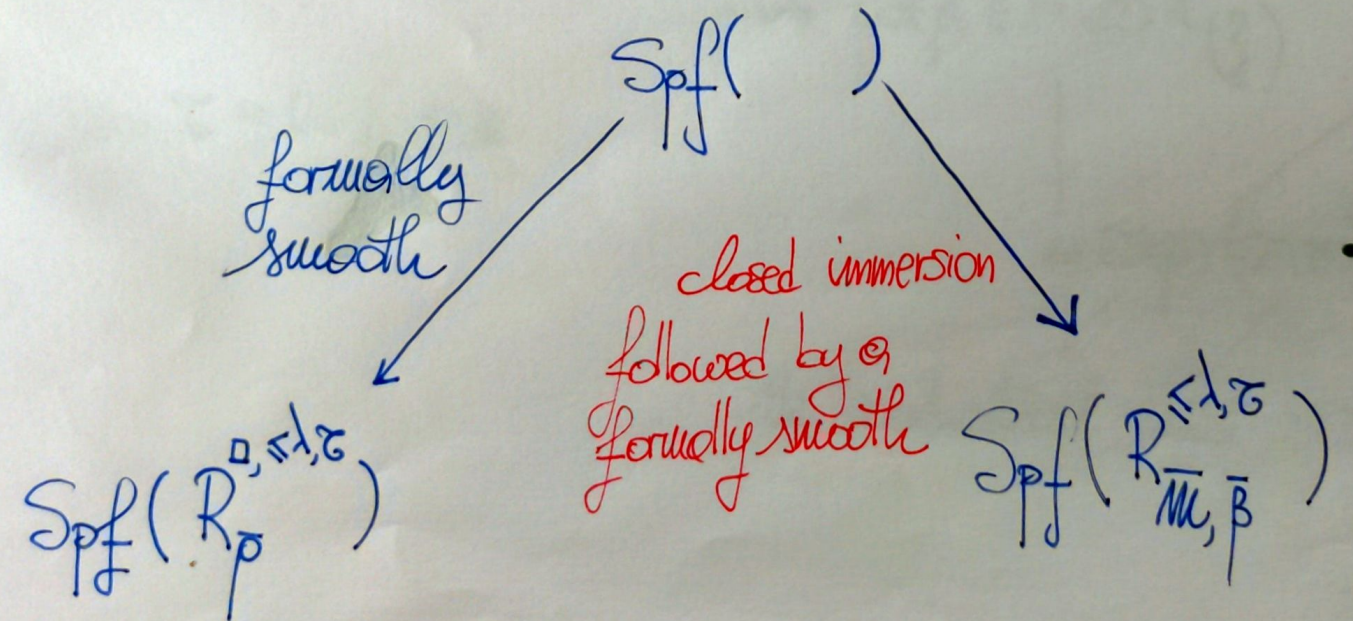 Spf(    )
formally
smooth
closed immersion
followed by a
formally smooth
Spf(R_{\bar{ρ}}^{□, ≤λ, τ})
Spf(R_{\bar{𝔐}, \bar{β}}^{≤λ, τ})